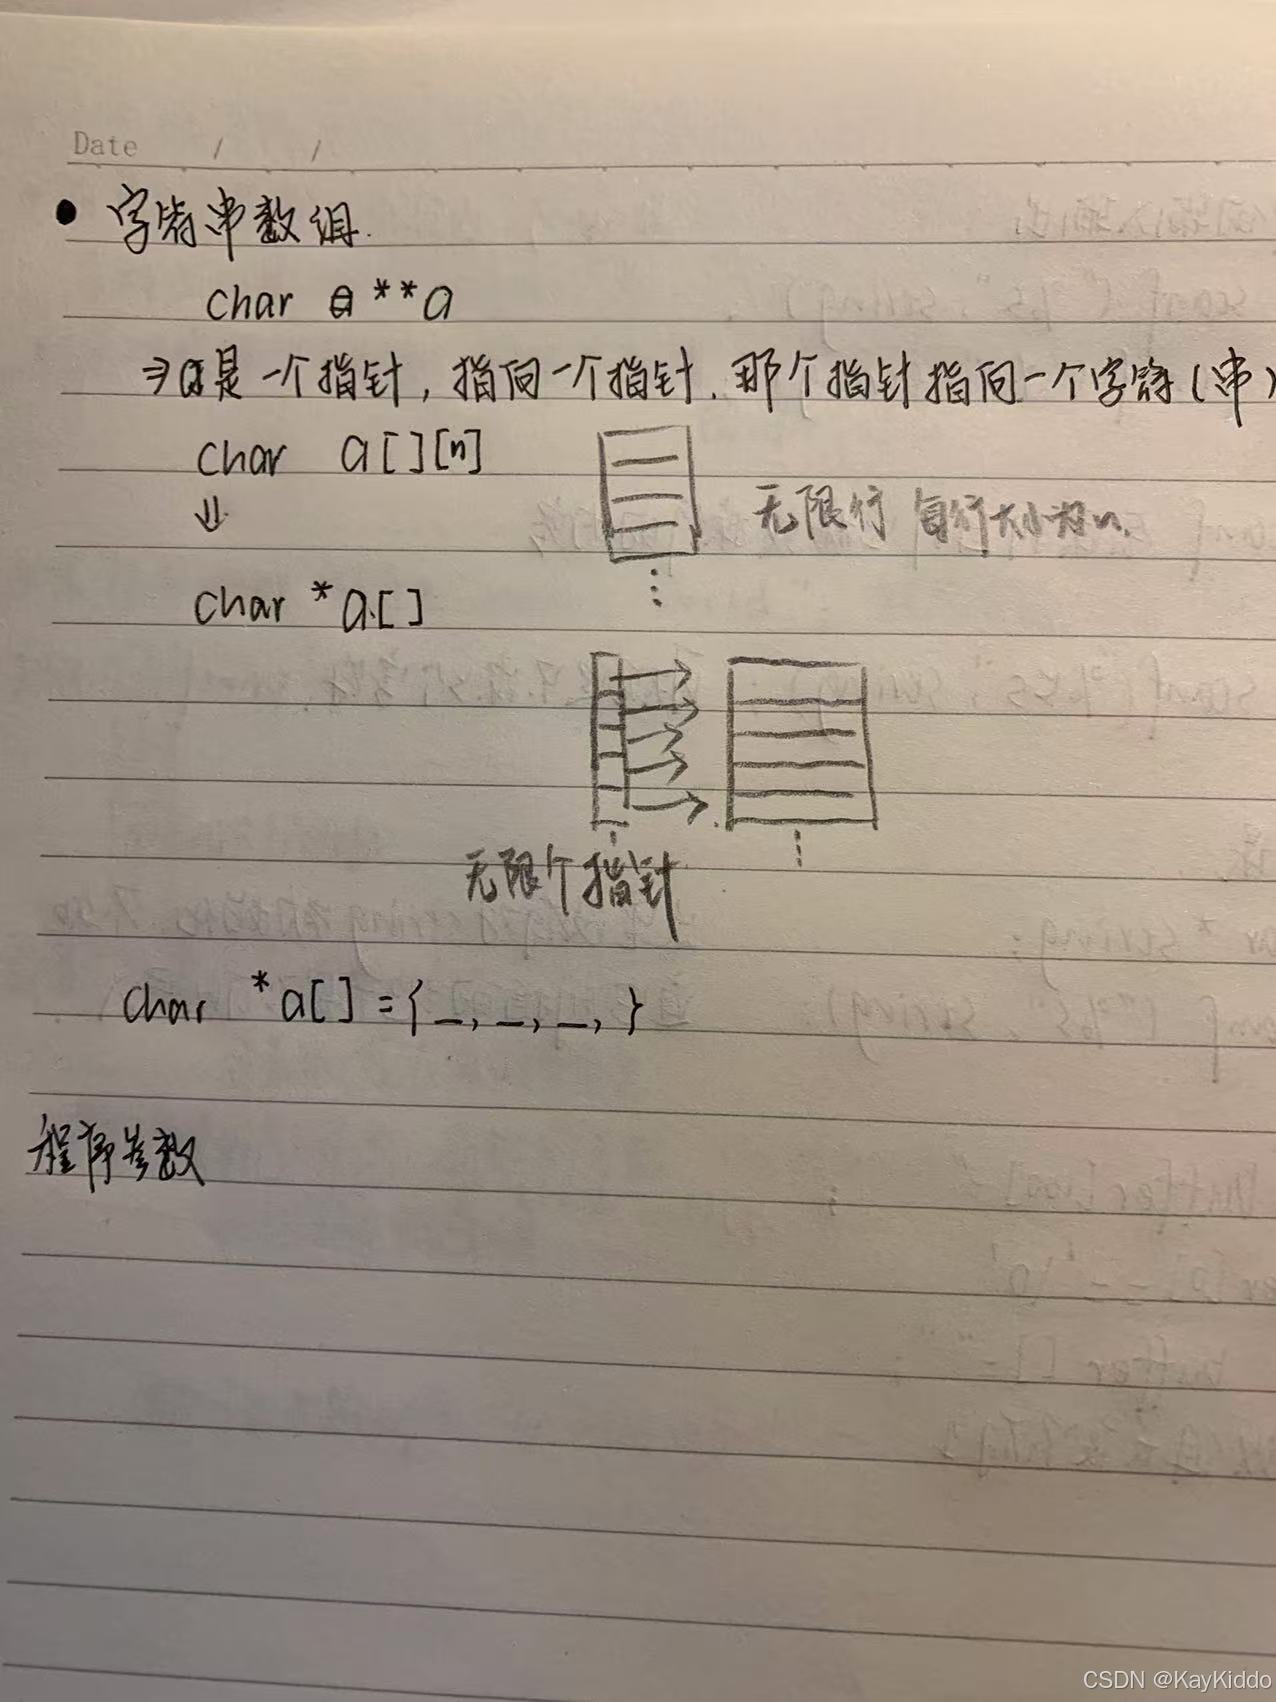 Date / /
● 字符串数组.
char **a
⇒ a是一个指针，指向一个指针.那个指针指向一个字符(串)
char a[][n]
无限行 每行大小为n.
⇓
char *a[]
无限个指针
char *a[] = {_, _, _, }
程序参数
CSDN @KayKiddo